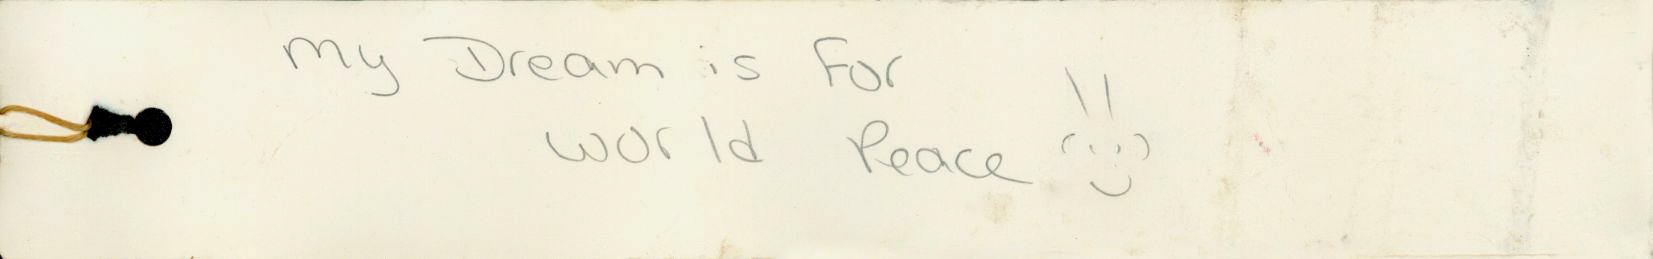 My Dream is For
World Peace !!